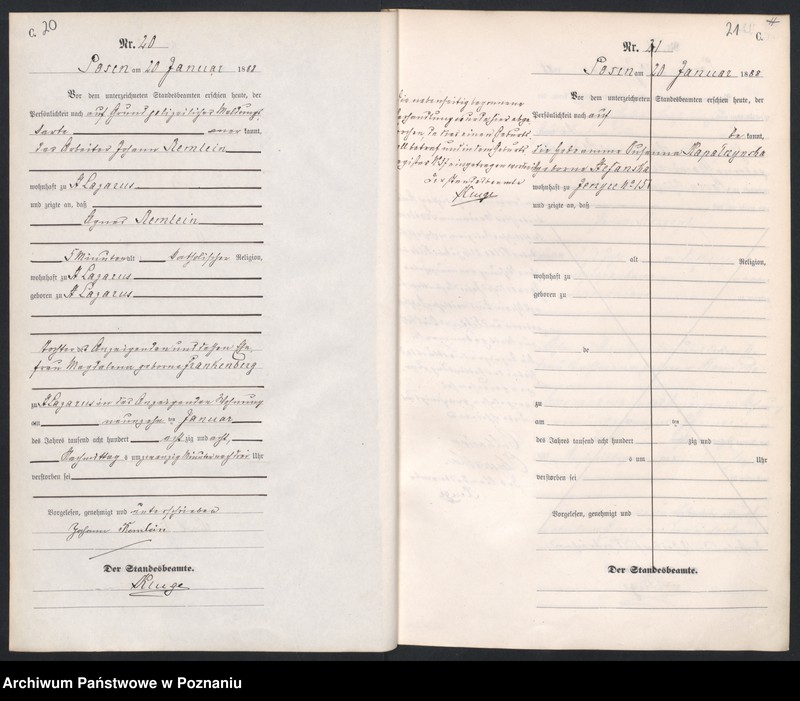 C. 20
Nr. 20
Posen am 20 Januar 1888
Vor dem unterzeichneten Standesbeamten erschien heute, der
Persönlichkeit nach auf Grund polizeilicher Meldungs
karte anerkannt,
der Arbeiter Johann Remlein
wohnhaft zu St Lazarus
und zeigte an, daß
Agnes Remlein
5 Minuten alt katholischer Religion,
wohnhaft zu St Lazarus
geboren zu St Lazarus
Tochter des Anzeigenden und dessen Ehe
frau Magdalena geborne Frankenberg
zu St Lazarus in des Anzeigenden Wohnung
am neunzehn ten Januar
des Jahres tausend acht hundert acht zig und acht,
Nachmittag s um zwanzig Minuten nach drei Uhr
verstorben sei
Vorgelesen, genehmigt und unterschrieben
Johann Remlein
Der Standesbeamte.
Kluge
21 C.
Nr. 21
Posen am 20 Januar 1888
Vor dem unterzeichneten Standesbeamten erschien heute, der
Persönlichkeit nach auf
be kannt,
die Hebeamme Susanna Kapalczynska
geborne Stefanska
wohnhaft zu Jerzyce No 15
und zeigte an, daß
alt Religion,
wohnhaft zu
geboren zu
de
zu
am ten
des Jahres tausend acht hundert zig und
s um Uhr
verstorben sei
Vorgelesen, genehmigt und
Der Standesbeamte.
Die nebenseitig begonnene
Verhandlung wurde hier abge
brochen, da dies einen Geburts
fall betraf und in dem Geburts
register eingetragen werden
Der Standesbeamte
Kluge
Archiwum Państwowe w Poznaniu